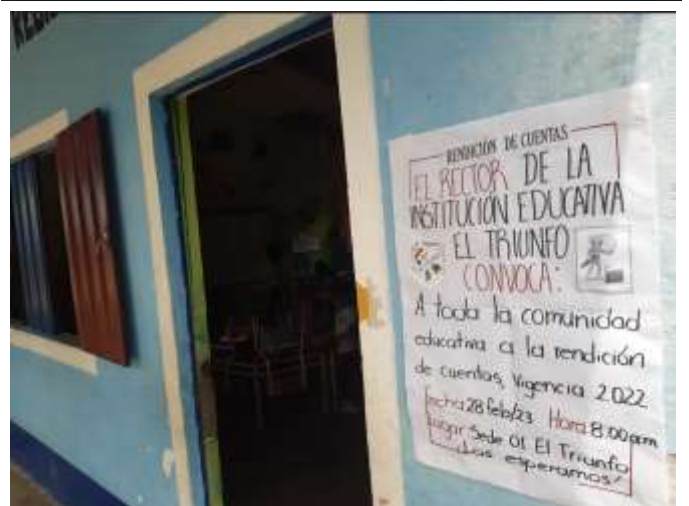 RENDICIÓN DE CUENTAS
EL RECTOR DE LA
INSTITUCIÓN EDUCATIVA
EL TRIUNFO
CONVOCA:
A toda la comunidad
educativa a la rendición
de cuentas, Vigencia 2022
fecha 28 feb/23 Hora 8:00 am
Lugar Sede 01 El Triunfo
Los esperamos!